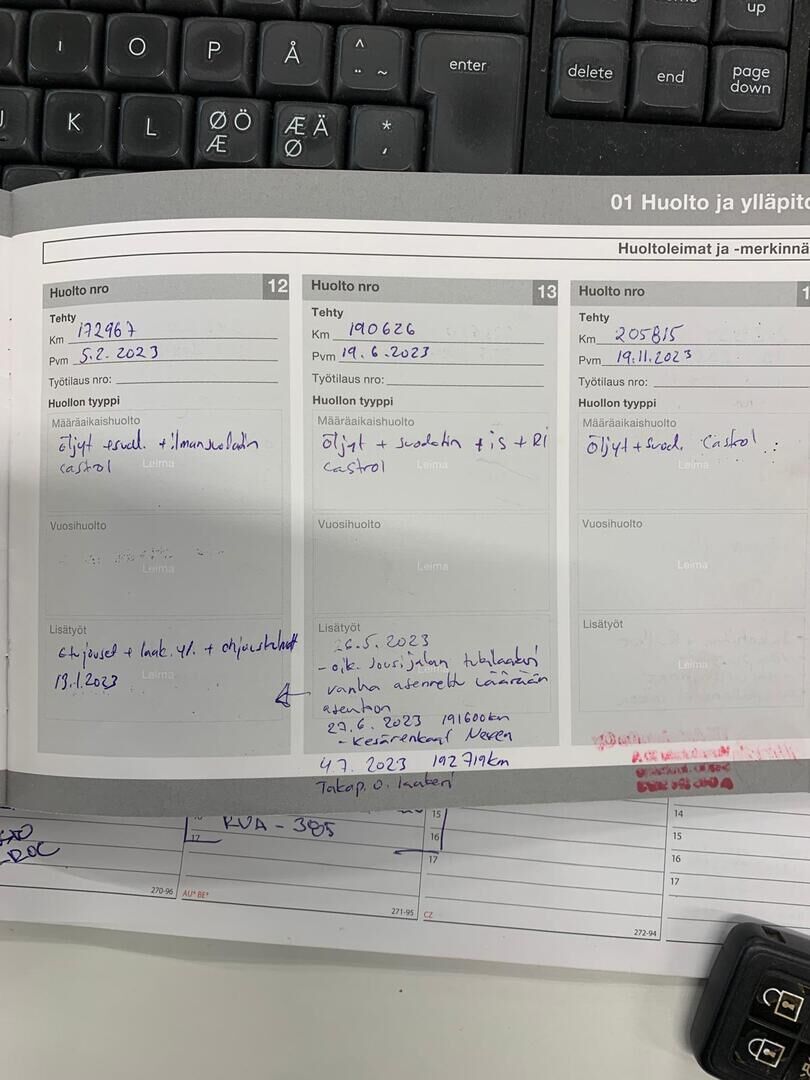 up
I O P Å ^ ¨ ~ enter delete end page down
J K L Ø Ö Æ Æ Ä Ø * '
01 Huolto ja ylläpito
Huoltoleimat ja -merkinnä
Huolto nro 12
Tehty
Km 172967
Pvm 5.2. 2023
Työtilaus nro:
Huollon tyyppi
Määräaikaishuolto
öljyt + suod. + ilmansuodatin
castrol
Leima
Vuosihuolto
Leima
Lisätyöt
etujouset + laak. yl. +
13.1.2023
Leima
Huolto nro 13
Tehty
Km 190626
Pvm 19.6.2023
Työtilaus nro:
Huollon tyyppi
Määräaikaishuolto
öljyt + suodatin + is + Ri
castrol
Leima
Vuosihuolto
Leima
Lisätyöt
26.5. 2023
- oik. Jousijalan tukilaakeri
vanha asennettu väärään
asentoon
27.6. 2023 191600km
- Kesärenkaat Nexen
4.7. 2023 192719km
Takap. o. laakeri
Huolto nro 1
Tehty
Km 205815
Pvm 19.11.2023
Työtilaus nro:
Huollon tyyppi
Määräaikaishuolto
öljyt + suod. Castrol
Leima
Vuosihuolto
Leima
Lisätyöt
Leima
17
RVA - 385
15
16
17
14
15
16
17
270-96
AU* BE*
271-95
CZ
272-94